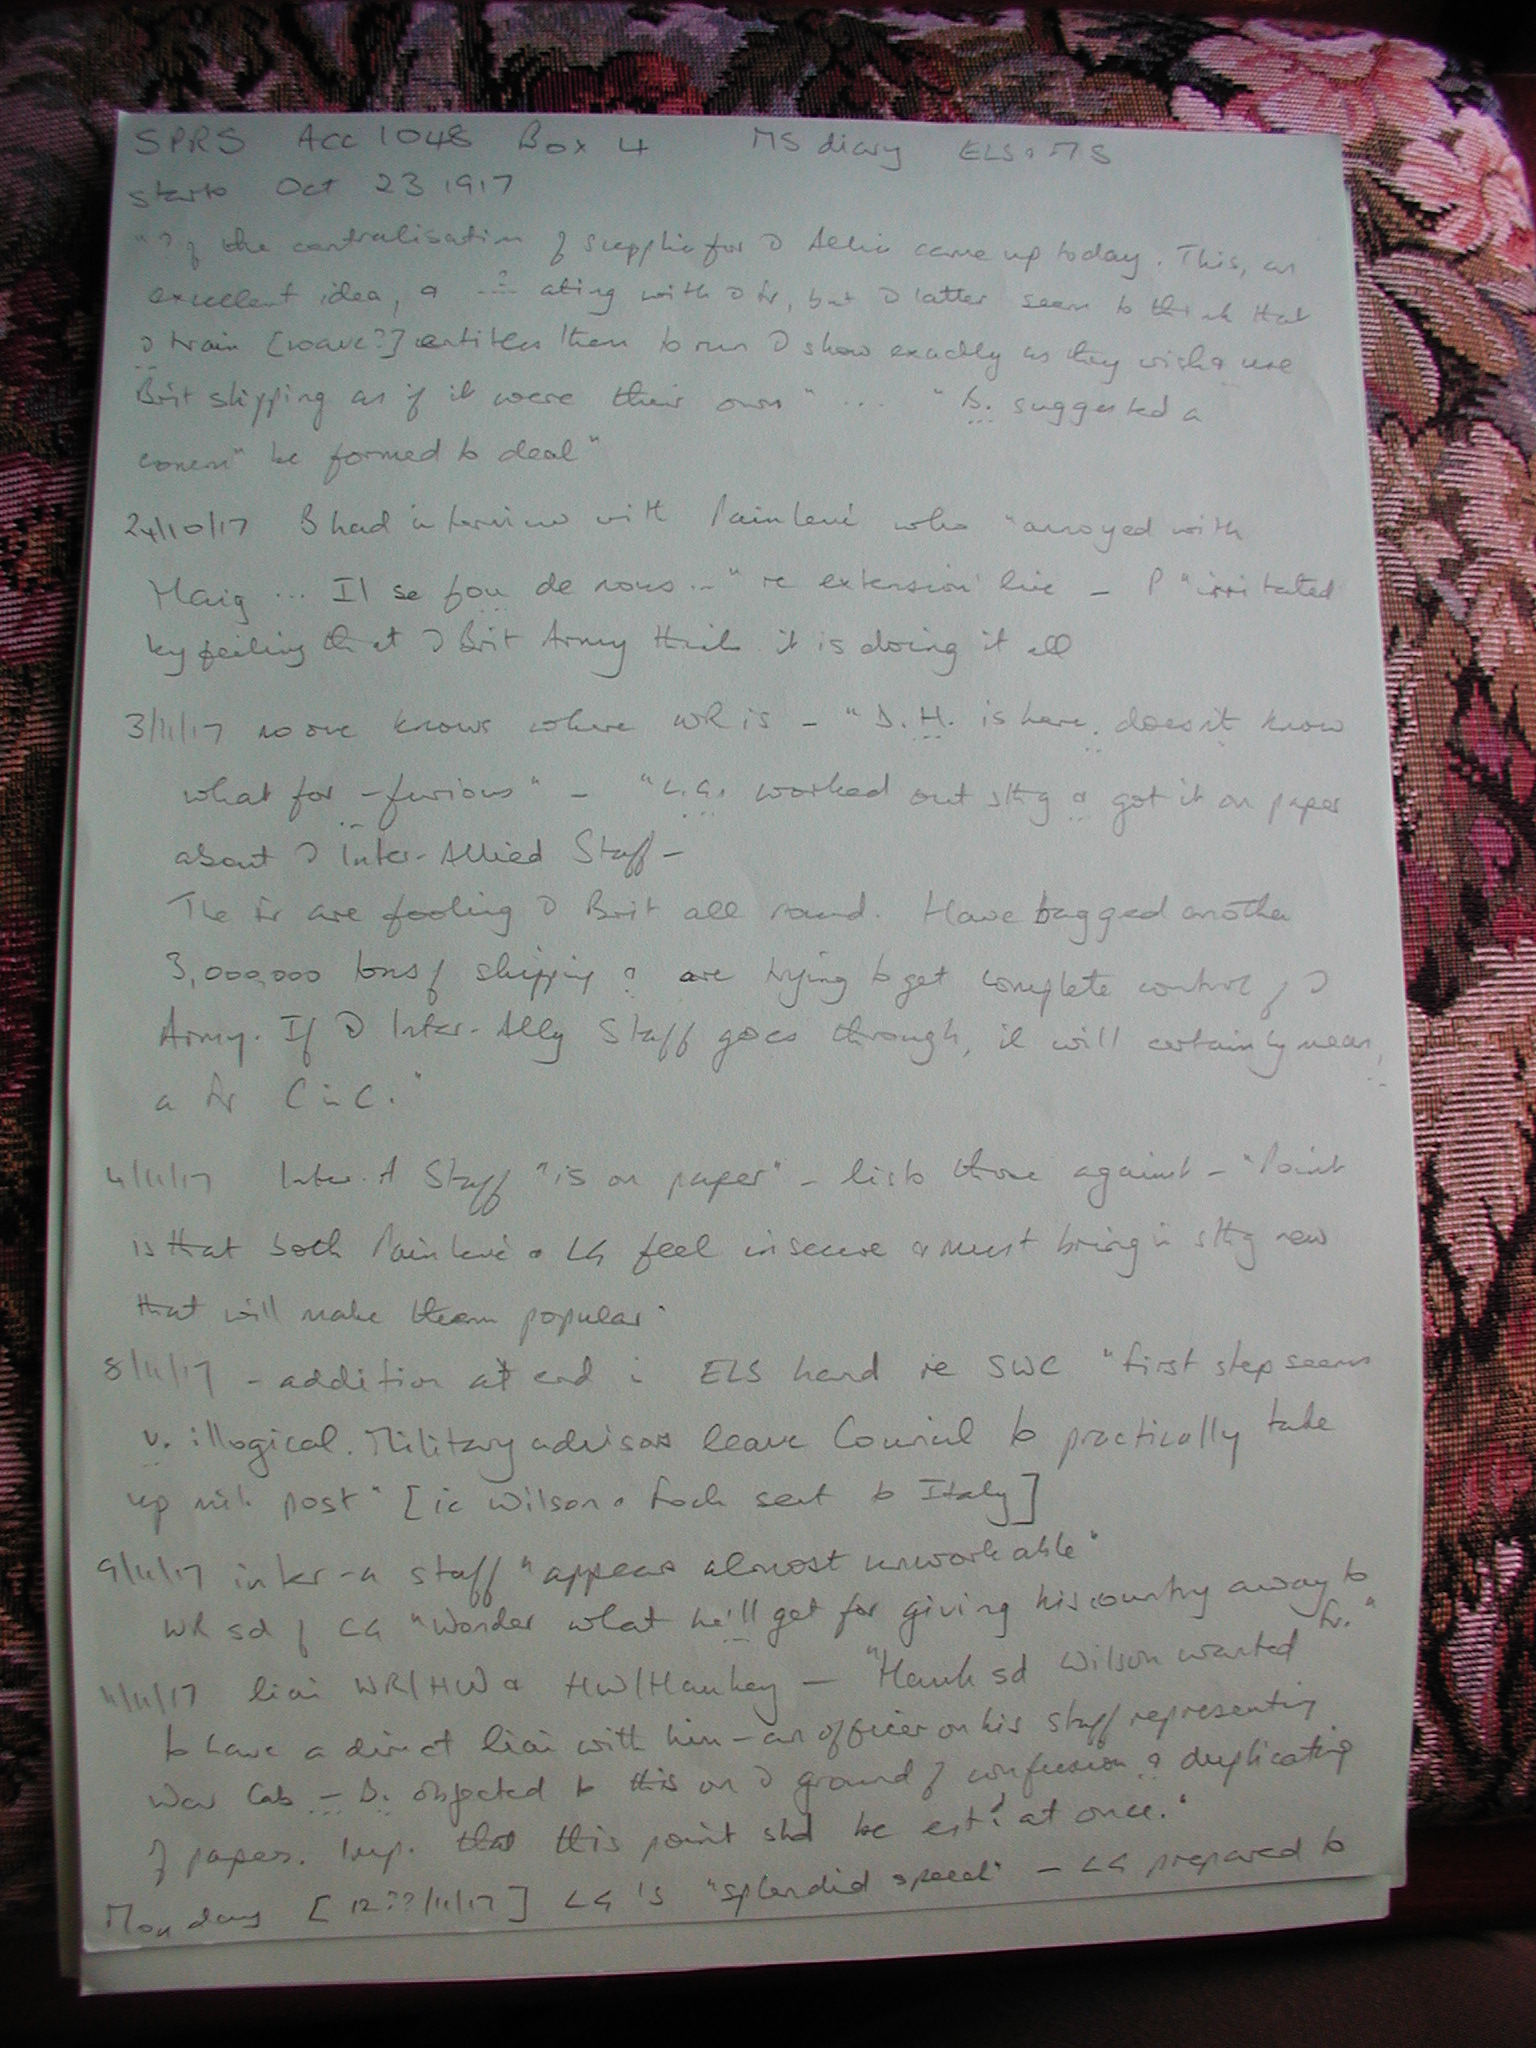 SPRS Acc 1048 Box 4 MS diary ELS + MS
starts Oct 23 1917
"? of the centralisation of supplies for Allies came up today. This, an
excellent idea, & ating with Fr, but latter seem to think that
train [wave??] entitles them to run show exactly as they wish & use
Brit shipping as if it were their own" ... "B. suggested a
be formed to deal"
24/10/17 B had interview with Painlevé who "annoyed with
Haig ... Il se fou de nous ..." re extension line - P "irritated
by feeling that Brit Army think it is doing it all
3/11/17 no one knows where WR is - "D.H. is here, doesn't know
what for - furious" - "L.G. worked out sthg & got it on paper
about Inter-Allied Staff -
The Fr are fooling Brit all round. Have bagged another
3,000,000 tons of shipping & are trying to get complete control of
Army. If Inter-Ally Staff goes through, it will certainly mean
a Fr C in C."
4/11/17 Inter-A Staff "is on paper" - lists those against - "Point
is that both Painlevé & LG feel insecure & must bring in sthg new
that will make them popular"
8/11/17 - addition at end in ELS hand re SWC "First step seems
v. illogical. Military advisors leave Council to practically take
up mil. post" [ie Wilson & Foch sent to Italy]
9/11/17 inter-a staff "appears almost unworkable"
WR sd of LG "Wonder what he'll get for giving his country away to
Fr."
11/11/17 liai WR/HW & HW/Hankey - "Hank sd Wilson wanted
to have a direct liai with him - an officer on his staff representing
War Cab - B. objected to this on ground of confusion & duplicating
of papers. Imp. that this point shd be estd at once."
Monday [12??/11/17] LG's "splendid speech" - LG prepared to